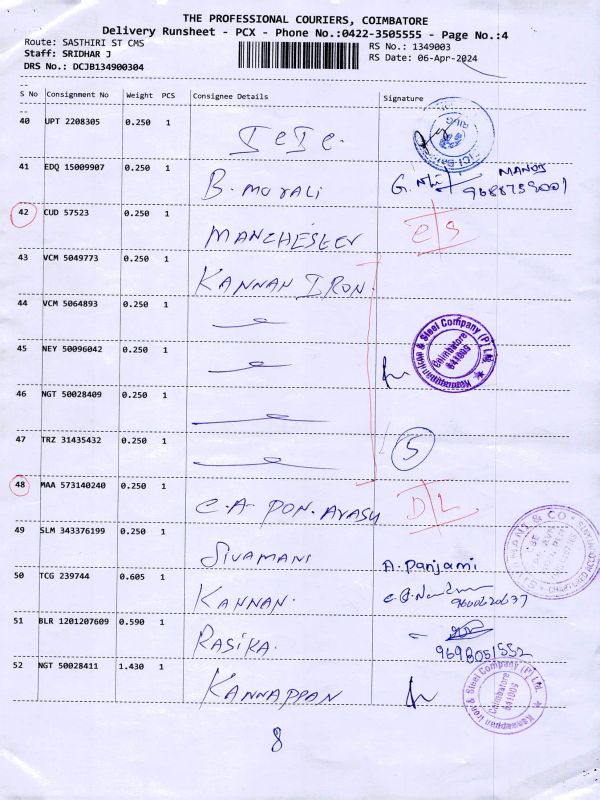 THE PROFESSIONAL COURIERS, COIMBATORE
Delivery Runsheet - PCX - Phone No.:0422-3505555 - Page No.:4
Route: SASTHIRI ST CMS
RS No.: 1349003
Staff: SRIDHAR J
RS Date: 06-Apr-2024
DRS No.: DCJB134900304
S No Consignment No Weight PCS Consignee Details Signature
40 UPT 2208305 0.250 1 ICIC.
41 EDQ 15009907 0.250 1 B. MURALI G. MANOJ
42 CUD 57523 0.250 1 MANCHESTER C/S
43 VCM 5049773 0.250 1 KANNAN IRON.
44 VCM 5064893 0.250 1
Kannappan Iron & Steel Company (P) Ltd.
Coimbatore
641009
45 NEY 50096042 0.250 1
46 NGT 50028409 0.250 1
47 TRZ 31435432 0.250 1 5
48 MAA 573140240 0.250 1 C.A PON. ARASU D/L
49 SLM 343376199 0.250 1 SIVAMANI A. Panjami
50 TCG 239744 0.605 1 KANNAN.
51 BLR 1201207609 0.590 1 RASIKA. 9698051552
52 NGT 50028411 1.430 1 KANNAPPAN
Kannappan Iron & Steel Company (P) Ltd.
Coimbatore
641009
8